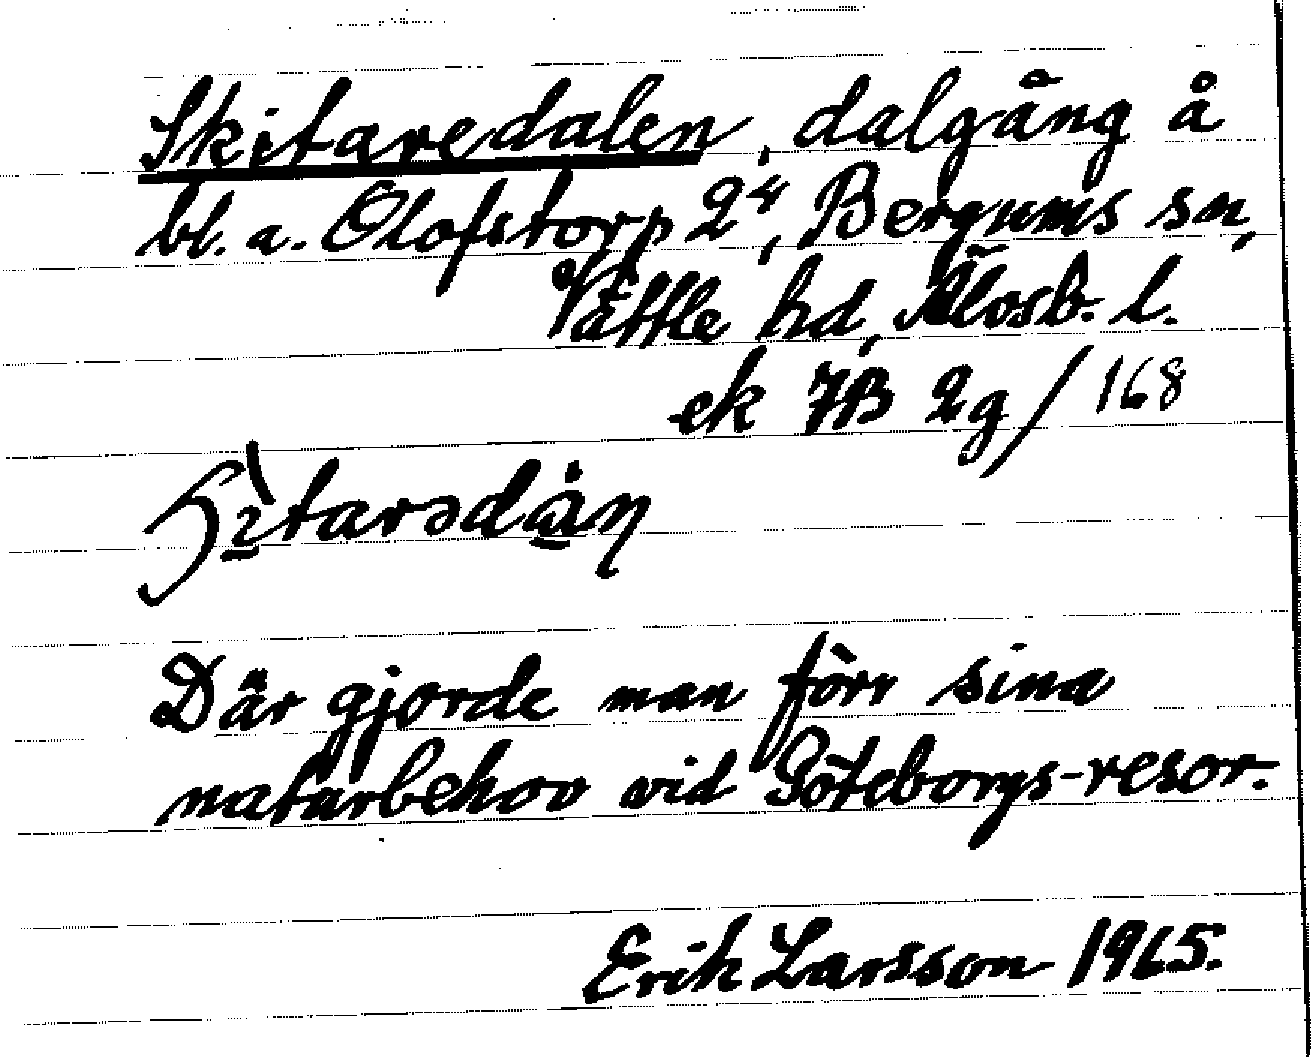 Skitaredalen, dalgång å
bl. a. Olofstorp 2⁴, Bergums sn,
Vättle hd, Älvsb. l.
ek 7B 2g/168
Där gjorde man förr sina
naturbehov vid Göteborgs-resor.
Erik Larsson 1965.